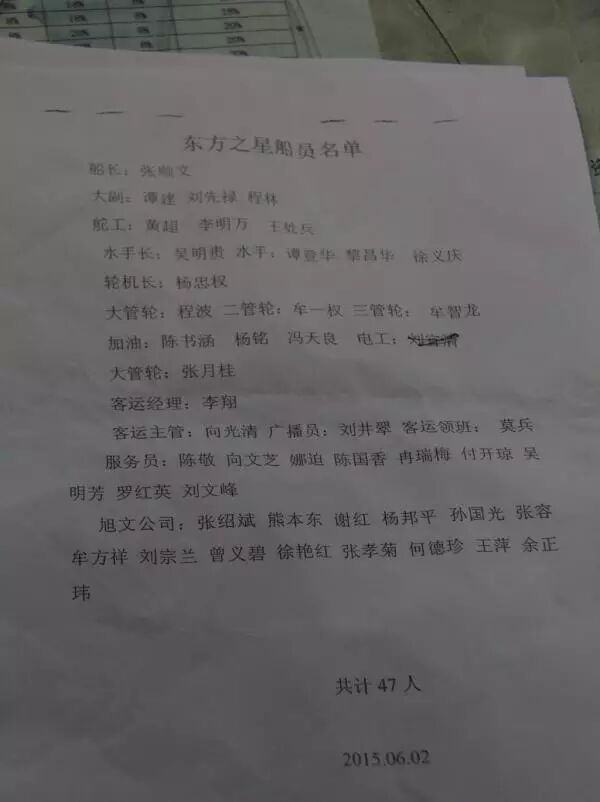 18%
20%
16%
20%
8%
20%
东方之星船员名单
船长：张顺文
大副：谭建 刘先禄 程林
舵工：黄超 李明万 王处兵
水手长：吴明贵 水手：谭登华 黎昌华 徐义庆
轮机长：杨忠权
大管轮：程波 二管轮：牟一权 三管轮： 牟智龙
加油：陈书涵 杨铭 冯天良 电工：
大管轮：张月桂
客运经理：李翔
客运主管：向光清 广播员：刘井翠 客运领班： 莫兵
服务员：陈敬 向文芝 娜迫 陈国香 冉瑞梅 付开琼 吴
明芳 罗红英 刘文峰
旭文公司：张绍斌 熊本东 谢红 杨邦平 孙国光 张容
牟方祥 刘宗兰 曾义碧 徐艳红 张孝菊 何德珍 王萍 余正
玮
共计 47 人
2015.06.02